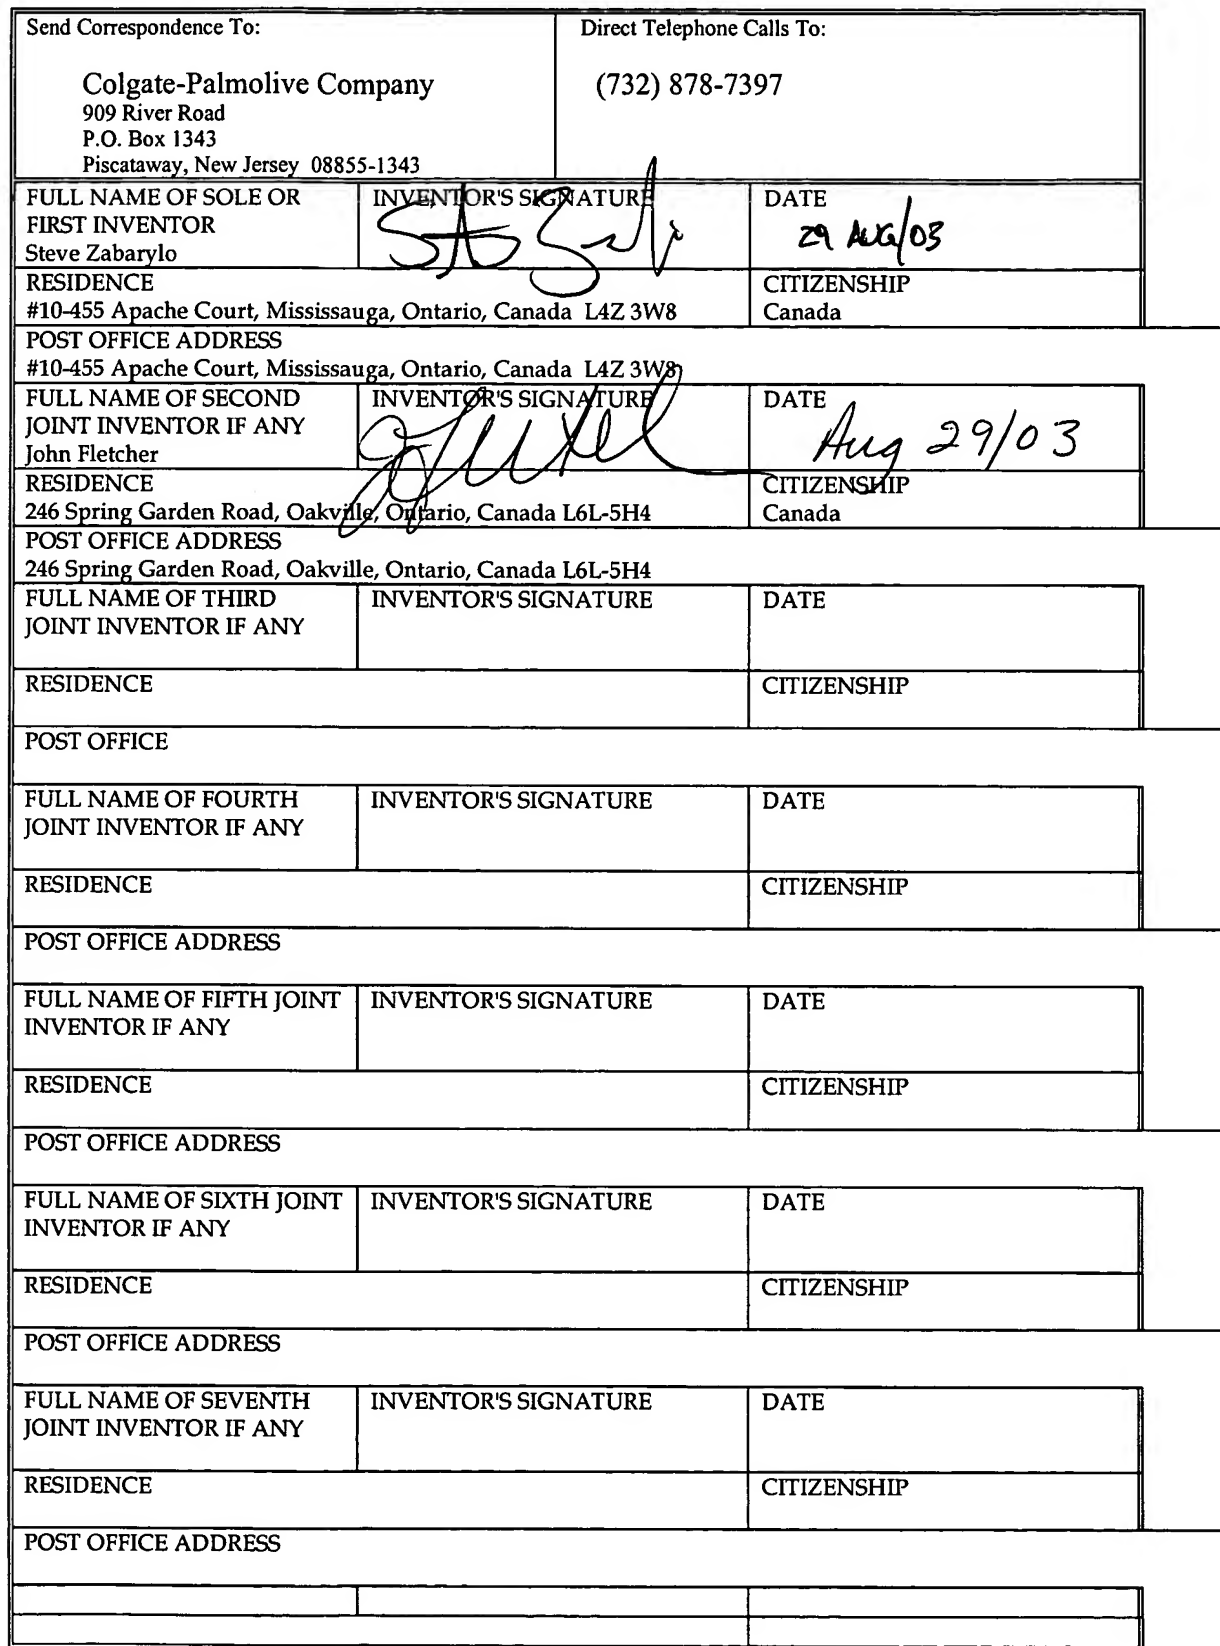 Send Correspondence To:
Direct Telephone Calls To:
Colgate-Palmolive Company
(732) 878-7397
909 River Road
P.O. Box 1343
Piscataway, New Jersey 08855-1343
FULL NAME OF SOLE OR
FIRST INVENTOR
Steve Zabarylo
INVENTOR'S SIGNATURE
DATE
29 AUG/03
RESIDENCE
#10-455 Apache Court, Mississauga, Ontario, Canada L4Z 3W8
CITIZENSHIP
Canada
POST OFFICE ADDRESS
#10-455 Apache Court, Mississauga, Ontario, Canada L4Z 3W8
FULL NAME OF SECOND
JOINT INVENTOR IF ANY
John Fletcher
INVENTOR'S SIGNATURE
DATE
Aug 29/03
RESIDENCE
246 Spring Garden Road, Oakville, Ontario, Canada L6L-5H4
CITIZENSHIP
Canada
POST OFFICE ADDRESS
246 Spring Garden Road, Oakville, Ontario, Canada L6L-5H4
FULL NAME OF THIRD
JOINT INVENTOR IF ANY
INVENTOR'S SIGNATURE
DATE
RESIDENCE
CITIZENSHIP
POST OFFICE
FULL NAME OF FOURTH
JOINT INVENTOR IF ANY
INVENTOR'S SIGNATURE
DATE
RESIDENCE
CITIZENSHIP
POST OFFICE ADDRESS
FULL NAME OF FIFTH JOINT
INVENTOR IF ANY
INVENTOR'S SIGNATURE
DATE
RESIDENCE
CITIZENSHIP
POST OFFICE ADDRESS
FULL NAME OF SIXTH JOINT
INVENTOR IF ANY
INVENTOR'S SIGNATURE
DATE
RESIDENCE
CITIZENSHIP
POST OFFICE ADDRESS
FULL NAME OF SEVENTH
JOINT INVENTOR IF ANY
INVENTOR'S SIGNATURE
DATE
RESIDENCE
CITIZENSHIP
POST OFFICE ADDRESS